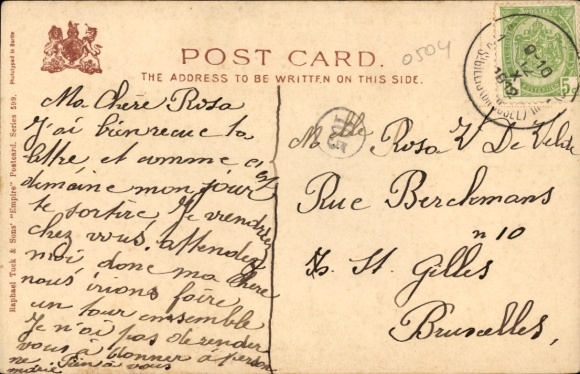 POST CARD.
THE ADDRESS TO BE WRITTEN ON THIS SIDE.
0504
Raphael Tuck & Sons' "Empire" Postcard. Series 599.
Ma Chère Rosa
J'ai bien recue ta
lettre et comme c'est
demaine mon jour
te sortire Je viendrez
chez vous, attendez
moi donc ma Chère
nous irions faire
un tour ensemble
Je n'ai pas de render
vous à donner à person
ne Rien à vous
Mlle Rosa V De Velde
Rue Berckmans
n 10
St. Gilles
Bruxelles,
9-10
1912
5